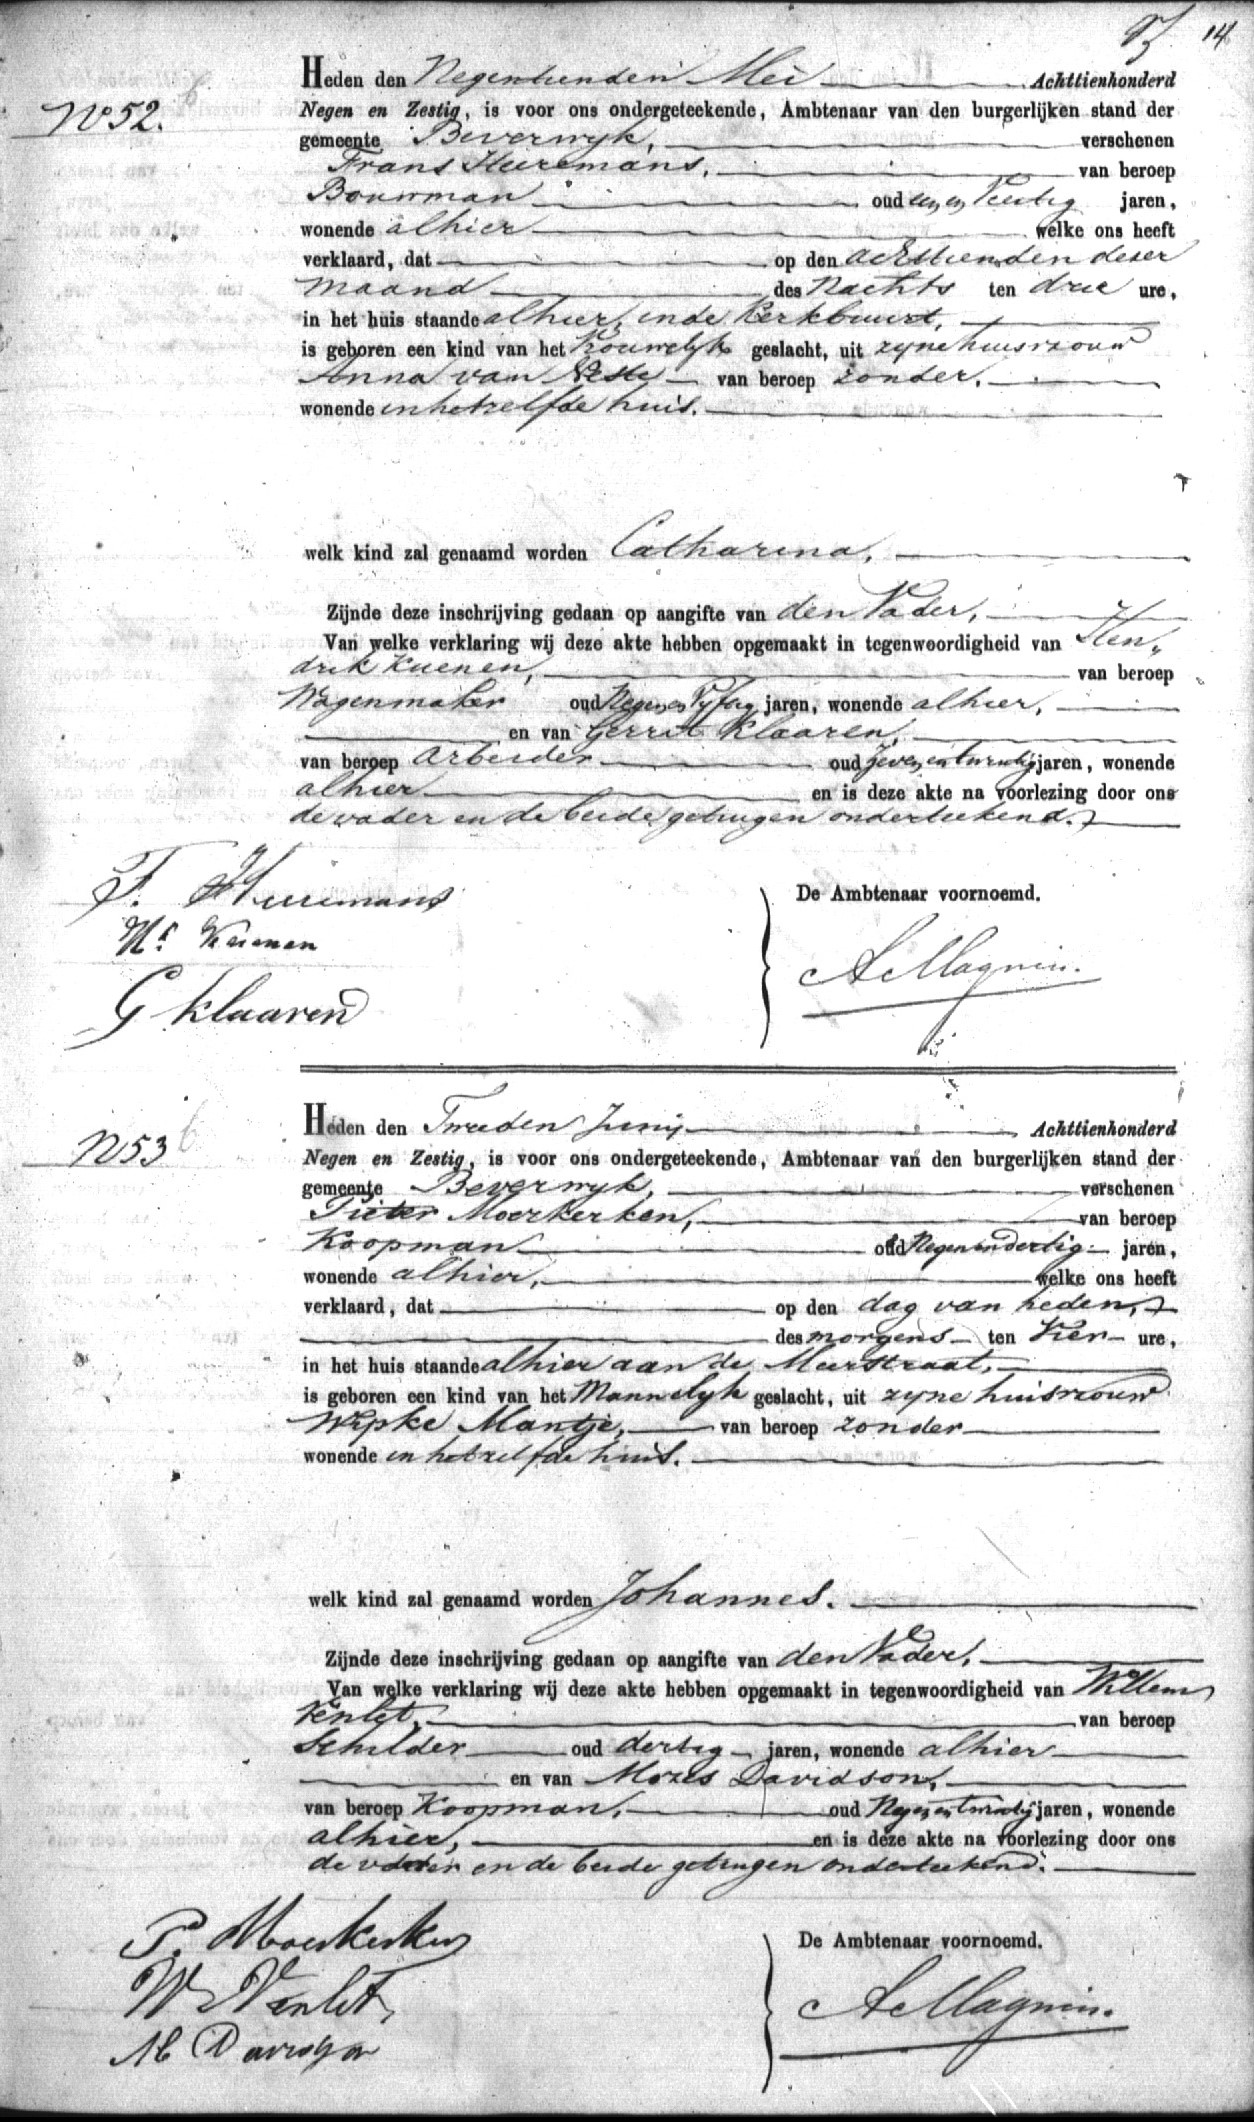 14
Heden den Negentienden Mei Achttienhonderd
No 52. Negen en Zestig, is voor ons ondergeteekende, Ambtenaar van den burgerlijken stand der
gemeente Beverwyk, verschenen
Frans Heeremans, van beroep
Bouwman oud een en Veertig jaren,
wonende alhier welke ons heeft
verklaard, dat op den achttienden dezer
maand des Nachts ten drie ure,
in het huis staande alhier, in de Kerkbuurt,
is geboren een kind van het Vrouwelyk geslacht, uit zyne huisvrouw
Anna van van beroep zonder.
wonende in hetzelfde huis.
welk kind zal genaamd worden Catharina,
Zijnde deze inschrijving gedaan op aangifte van den Vader,
Van welke verklaring wij deze akte hebben opgemaakt in tegenwoordigheid van Hen„
drik Kuenen, van beroep
Wagenmaker oud Negen en Vyftig jaren, wonende alhier,
en van Gerrit Klaaren,
van beroep Arbeider oud Zeven en twintig jaren, wonende
alhier en is deze akte na voorlezing door ons
de vader en de beide getuigen onderteekend.
F. Heeremans De Ambtenaar voornoemd.
Hk Kuenen
G Klaaren A Magnin.
Heden den Tweeden Junij Achttienhonderd
N 53 Negen en Zestig, is voor ons ondergeteekende, Ambtenaar van den burgerlijken stand der
gemeente Beverwyk, verschenen
Pieter Moerkerken, van beroep
Koopman oud Negen en dertig jaren,
wonende alhier, welke ons heeft
verklaard, dat op den dag van heden,
des morgens ten Vier ure,
in het huis staande alhier aan de Meerstraat,
is geboren een kind van het Mannelyk geslacht, uit zyne huisvrouw
Wipke Mantje, van beroep zonder
wonende in hetzelfde huis.
welk kind zal genaamd worden Johannes.
Zijnde deze inschrijving gedaan op aangifte van den Vader,
Van welke verklaring wij deze akte hebben opgemaakt in tegenwoordigheid van Willem
Venlet, van beroep
Schilder oud dertig jaren, wonende alhier
en van Mozes Davidson,
van beroep Koopman, oud Negen en twintig jaren, wonende
alhier, en is deze akte na voorlezing door ons
de vader en de beide getuigen onderteekend.
P. Moerkerken De Ambtenaar voornoemd.
W Venlet
M Davidson A Magnin.